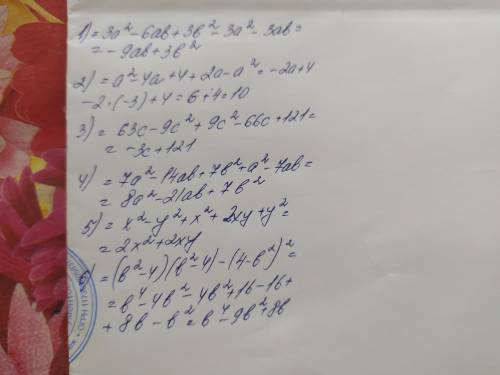 1) = 3a² - 6ab + 3b² - 3a² - 3ab =
= - 9ab + 3b²
2) = a² - 4a + 4 + 2a - a² = -2a + 4
-2 · (-3) + 4 = 6 + 4 = 10
3) = 63c - 9c² + 9c² - 66c + 121 =
= -3c + 121
4) = 7a² - 14ab + 7b² + a² - 7ab =
= 8a² - 21ab + 7b²
5) = x² - y² + x² + 2xy + y² =
= 2x² + 2xy
= (b² - 4)(b² - 4) - (4 - b²)² =
= b⁴ - 4b² - 4b² + 16 - 16 +
+ 8b - b² = b⁴ - 9b² + 8b